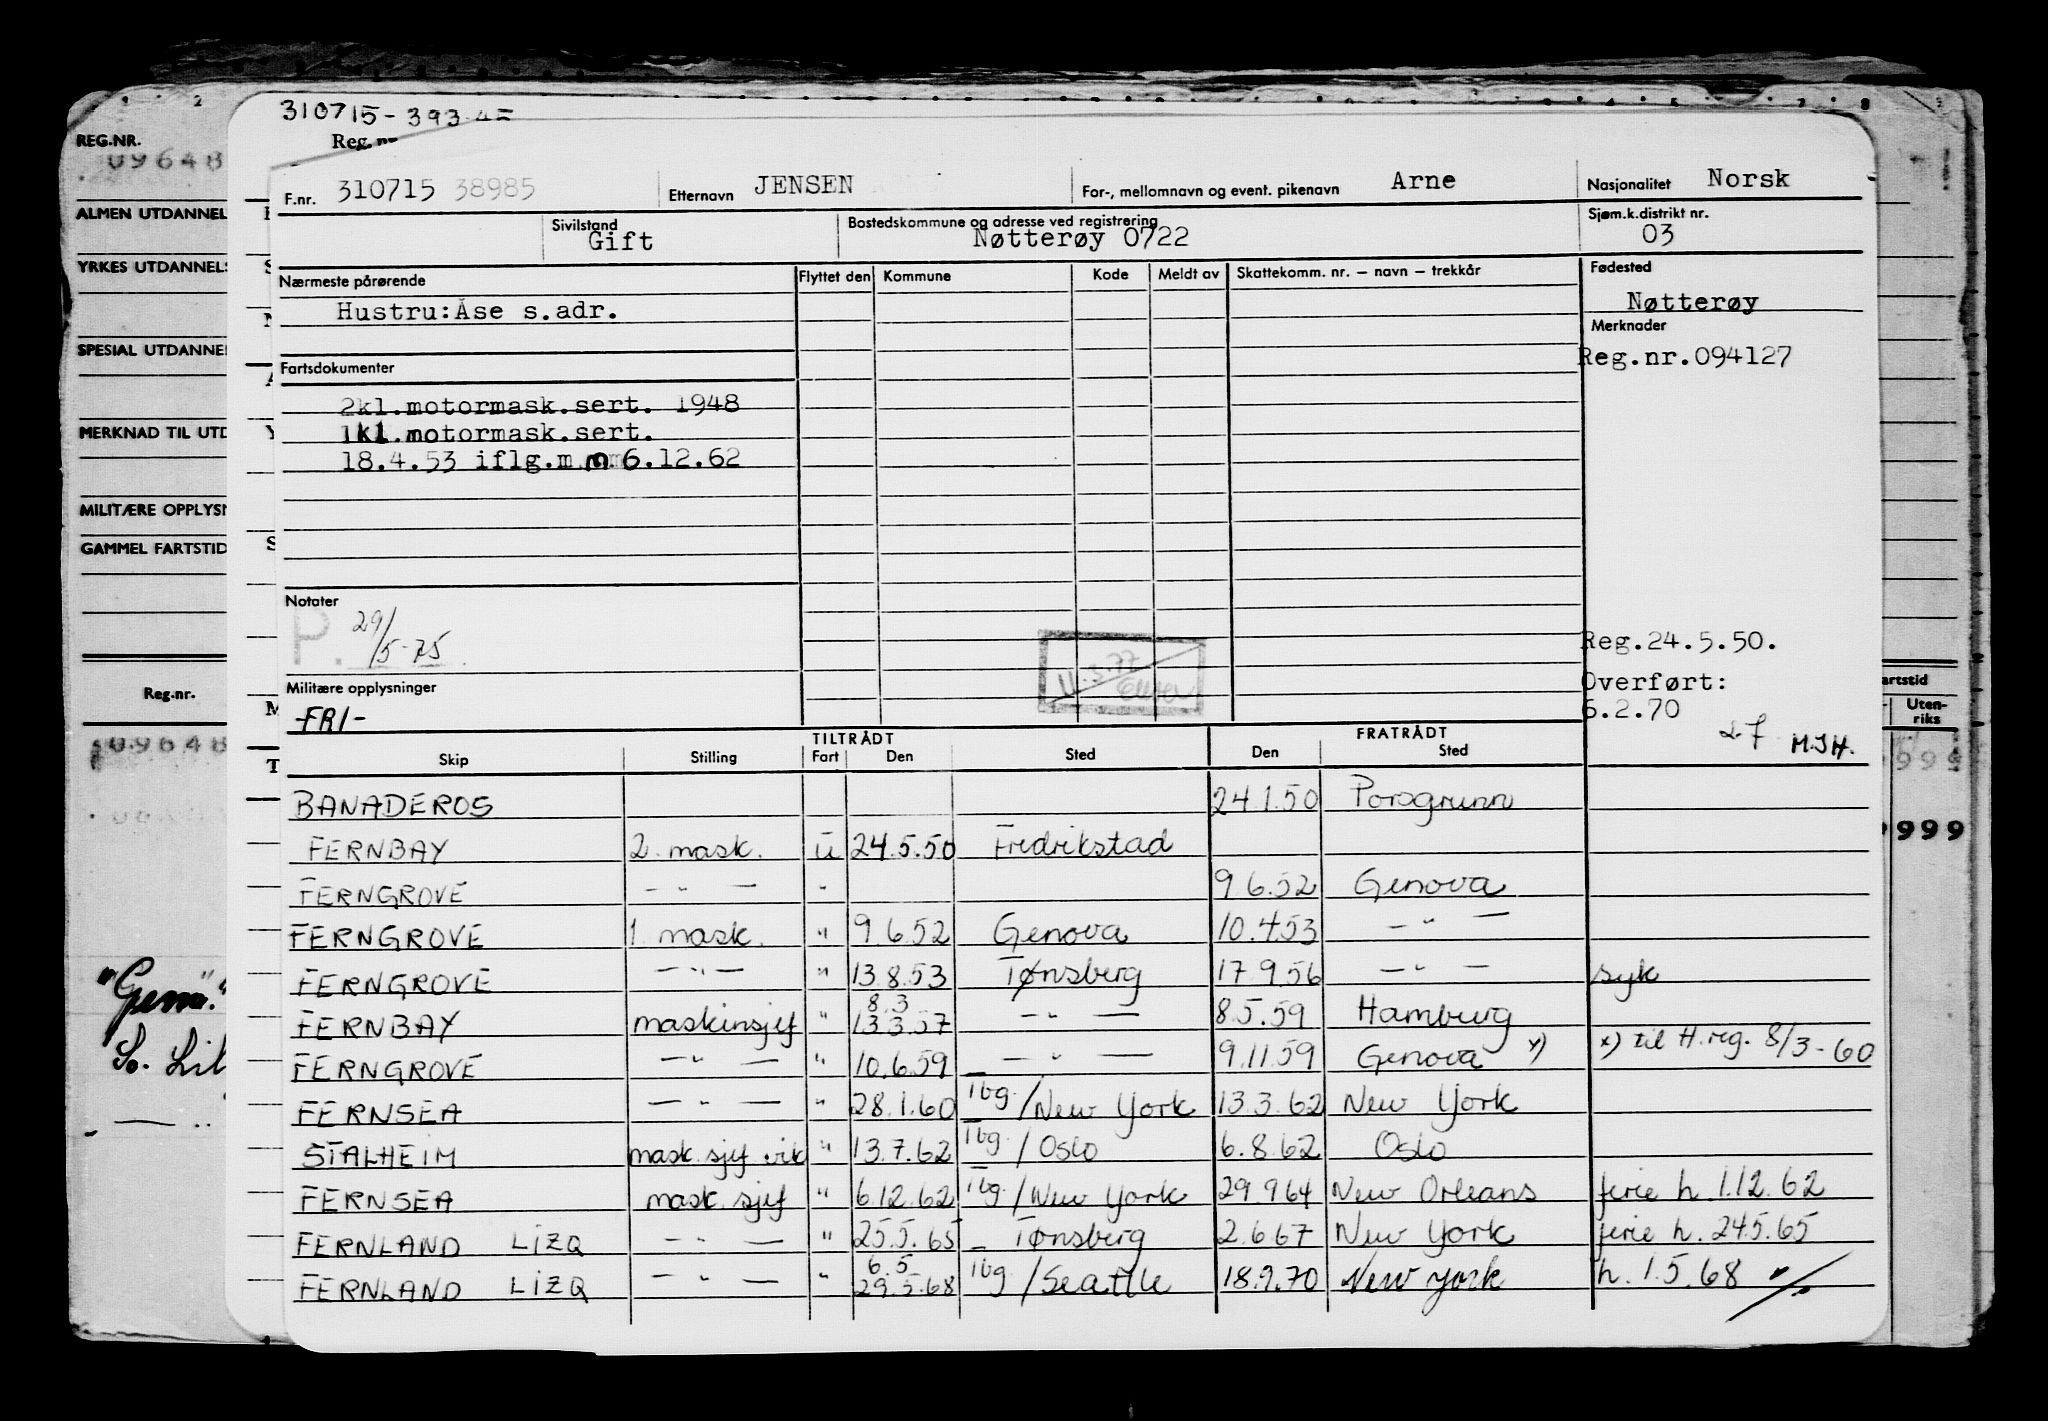 310715-393
Reg. nr
REG.NR.
09648
F.nr. 310715 38985 Etternavn JENSEN For-, mellomnavn og event. pikenavn Arne Nasjonalitet Norsk
ALMEN UTDANNEL
Sivilstand Gift Bostedskommune og adresse ved registrering Nøtterøy 0722 Sjøm.k.distrikt nr. 03
YRKES UTDANNELS
Nærmeste pårørende Flyttet den Kommune Kode Meldt av Skattekomm. nr. – navn – trekkår Fødested
Hustru:Åse s.adr. Nøtterøy
Merknader
SPESIAL UTDANNEL
Reg.nr.094127
Fartsdokumenter
2kl.motormask.sert. 1948
MERKNAD TIL UTD
1kl.motormask.sert.
18.4.53 iflg.m.m 6.12.62
MILITÆRE OPPLYSN
GAMMEL FARTSTID
Notater
P. 29/5-75
11.3.77
Reg.24.5.50.
Militære opplysninger
Overført:
6.2.70
-FRI-
M.J.H.
Reg.nr.
artstid
Uten-
riks
TILTRÅDT FRATRÅDT
Skip Stilling Fart Den Sted Den Sted
09648
999
BANADEROS 24.1.50 Porsgrunn
FERNBAY 2. mask. U 24.5.50 Fredrikstad
999
FERNGROVE — " — " 9.6.52 Genova
FERNGROVE 1. mask. " 9.6.52 Genova 10.4.53 — " —
FERNGROVE — " — " 13.8.53 Tønsberg 17.9.56 — " — syk
"Gem."
8.3
FERNBAY maskinsjef " 13.3.57 — " — 8.5.59 Hamburg
So. Lil
FERNGROVE — " — " 10.6.59 — " — 9.11.59 Genova x) x) til H.reg. 8/3-60
FERNSEA — " — " 28.1.60 Tbg/New York 13.3.62 New York
STALHEIM mask.sjef vik " 13.7.62 Tbg./Oslo 6.8.62 Oslo
FERNSEA mask.sjef " 6.12.62 Tbg./New York 29.9.64 New Orleans ferie h 1.12.62
FERNLAND LIZQ — " — " 25.5.65 Tønsberg 2.6.67 New York ferie h. 24.5.65
6.5
FERNLAND LIZQ — " — " 29.5.68 Tbg/Seattle 18.9.70 New York h. 1.5.68 "/.